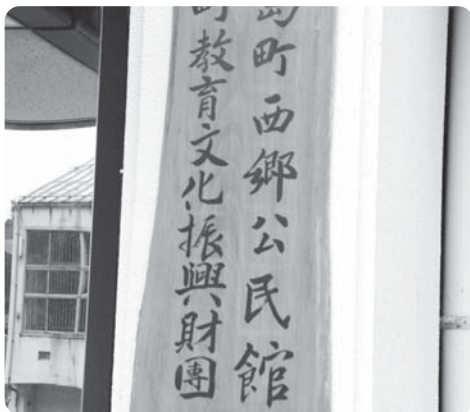 島町西郷公民館
町教育文化振興財團